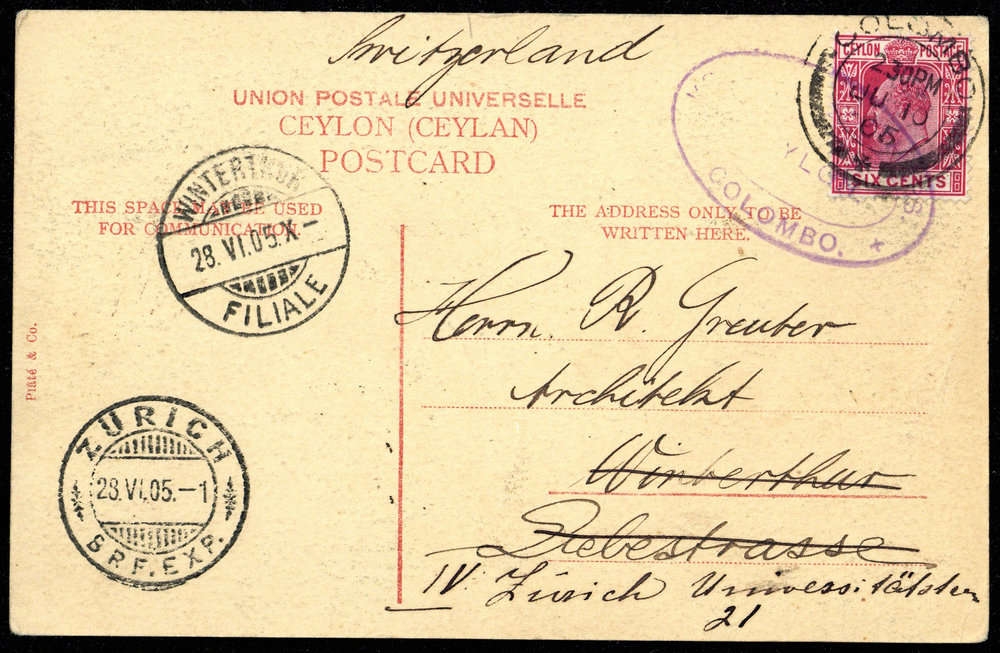 Switzerland
UNION POSTALE UNIVERSELLE
CEYLON (CEYLAN)
POSTCARD
THIS SPACE MAY BE USED
FOR COMMUNICATION.
THE ADDRESS ONLY TO BE
WRITTEN HERE.
COLOMBO
2 30 PM
JU 10
05
CEYLON POSTAGE
SIX CENTS
COLOMBO.
WINTERTHUR
28.VI.05.X-
FILIALE
Herrn. R. Greuter
Architekt
Winterthur
Liebestrasse
IV. Zürich Universitätstr
21
Plâté & Co.
ZÜRICH
28.VI.05.-1
BRF.EXP.